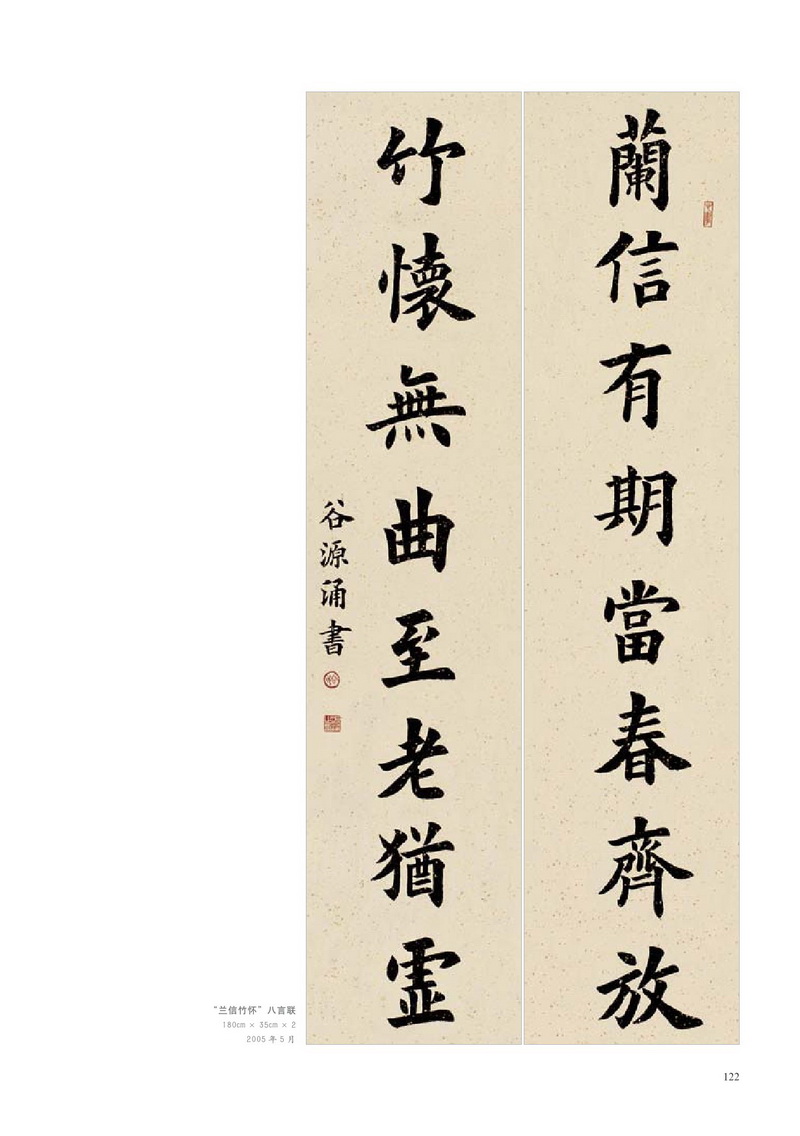 蘭信有期當春齊放
竹懷無曲至老猶霊
谷源涌書
“兰信竹怀”八言联
180cm × 35cm × 2
2005 年 5 月
122